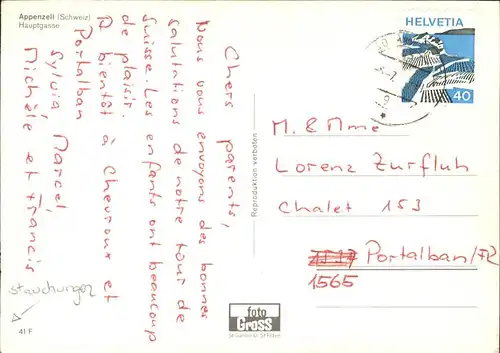 Appenzell (Schweiz)
Hauptgasse
Chers parents,
Nous vous envoyons des bonnes
salutations de notre tour de
Suisse. Les enfants ont beaucoup
de plaisir.
A bientôt à Chevroux et
Portalban
Sylvia, Marcel,
Michèle et Francis
Stauchungen
41 F
Reproduktion verboten
foto
Gross
St. Gallen
HELVETIA
40
M. & Mme
Lorenz Zurfluh
Chalet 153
Portalban/FR
1565